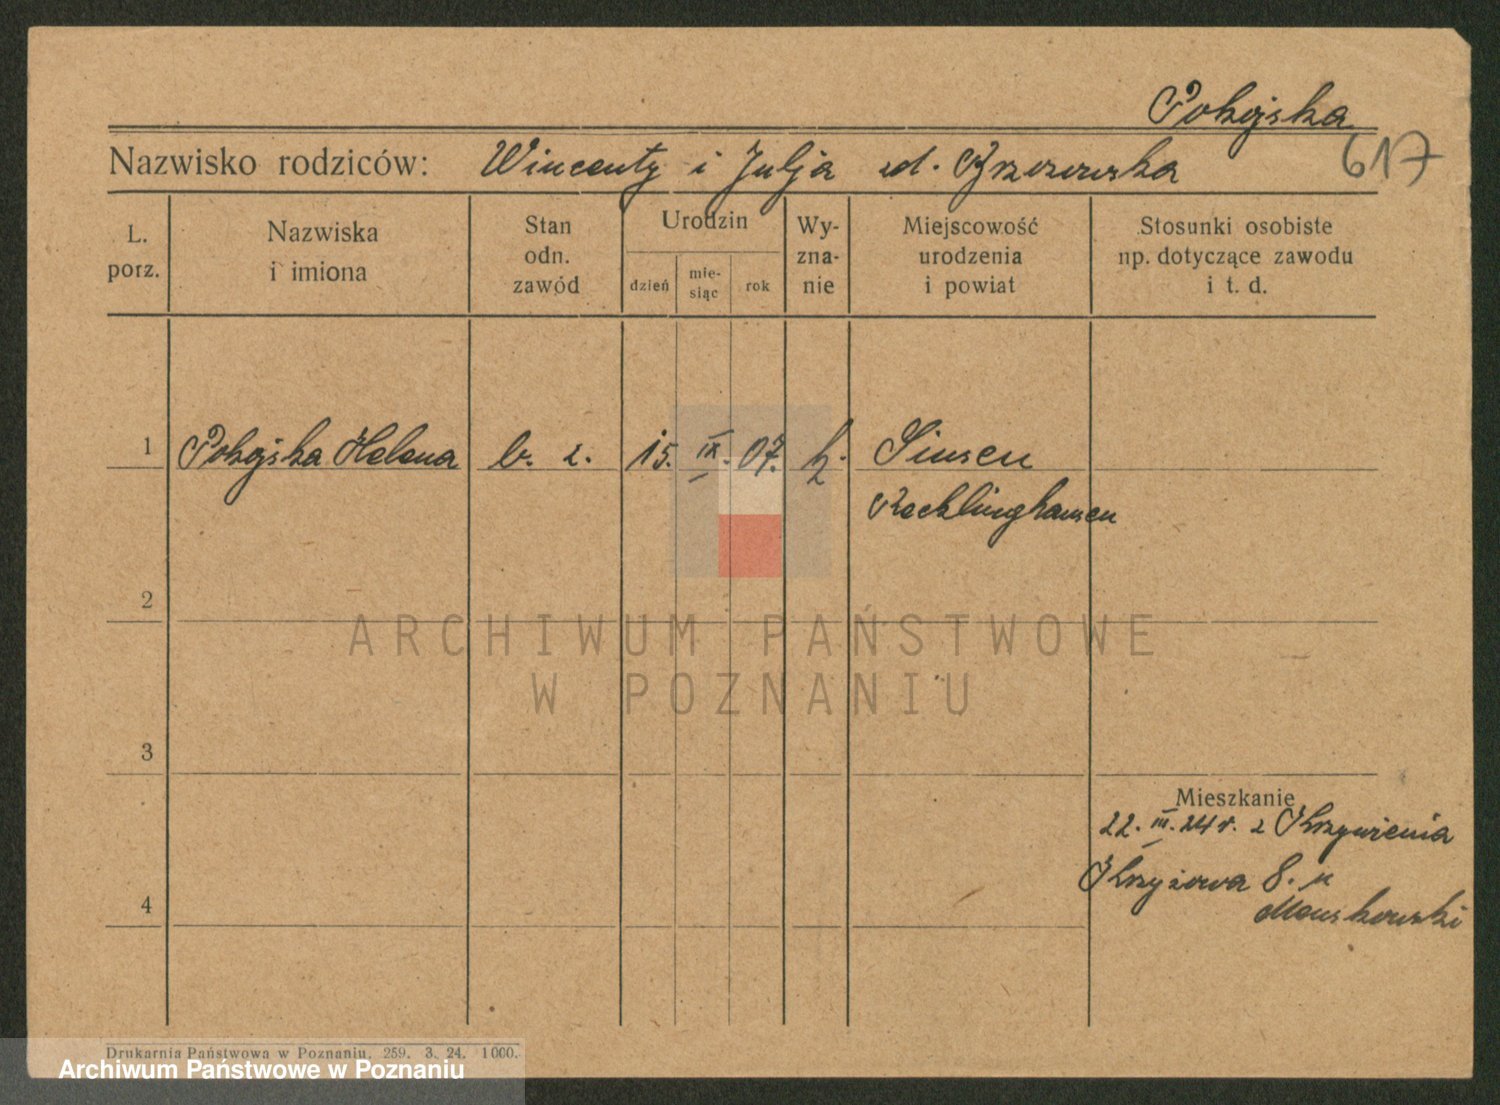 Pokojska
617
Nazwisko rodziców: Wincenty i Julja
L. porz.
Nazwiska i imiona
Stan odn. zawód
Urodzin
dzień
mie-siąc
rok
Wy-zna-nie
Miejscowość urodzenia i powiat
Stosunki osobiste np. dotyczące zawodu i t. d.
1 Pokojska Helena b. z. 15. IX. 07. k. Sinsen
Recklinghausen
2
ARCHIWUM PAŃSTWOWE
W POZNANIU
3
Mieszkanie
22. III. 24 r. z Krzywienia
4
Krzyżowa 8. u
Drukarnia Państwowa w Poznaniu. 259. 3. 24. 1000.
Archiwum Państwowe w Poznaniu